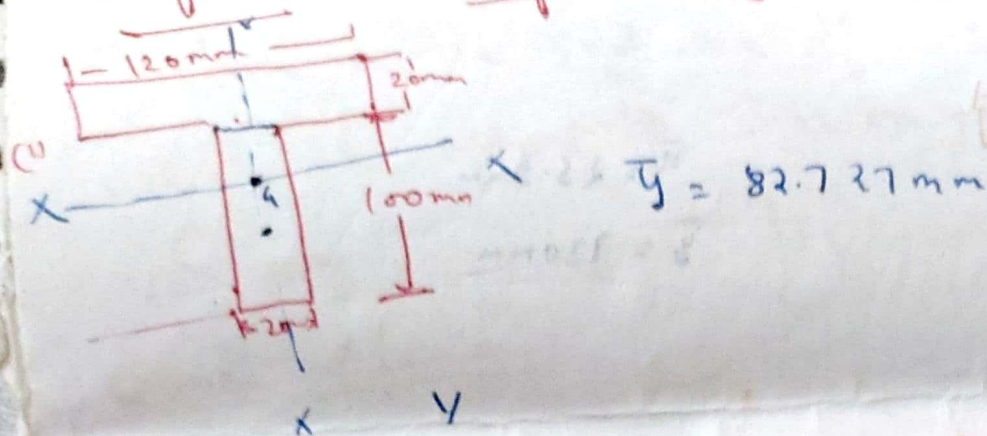 120mm
20mm
(1)
X X
G
100mm
ȳ = 82.727mm
20
X Y